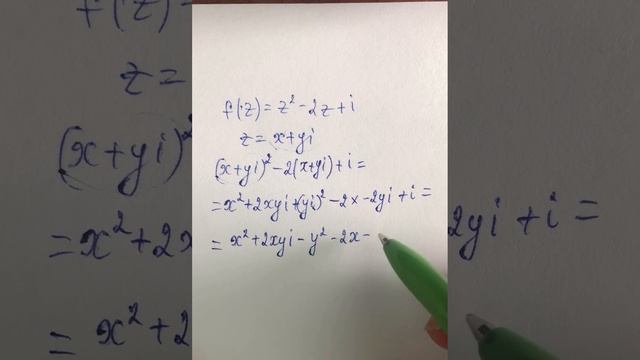 f(z) = z² - 2z + i
z = x + yi
(x+yi)² - 2(x+yi) + i =
= x² + 2xyi + (yi)² - 2x - 2yi + i =
= x² + 2xyi - y² - 2x -